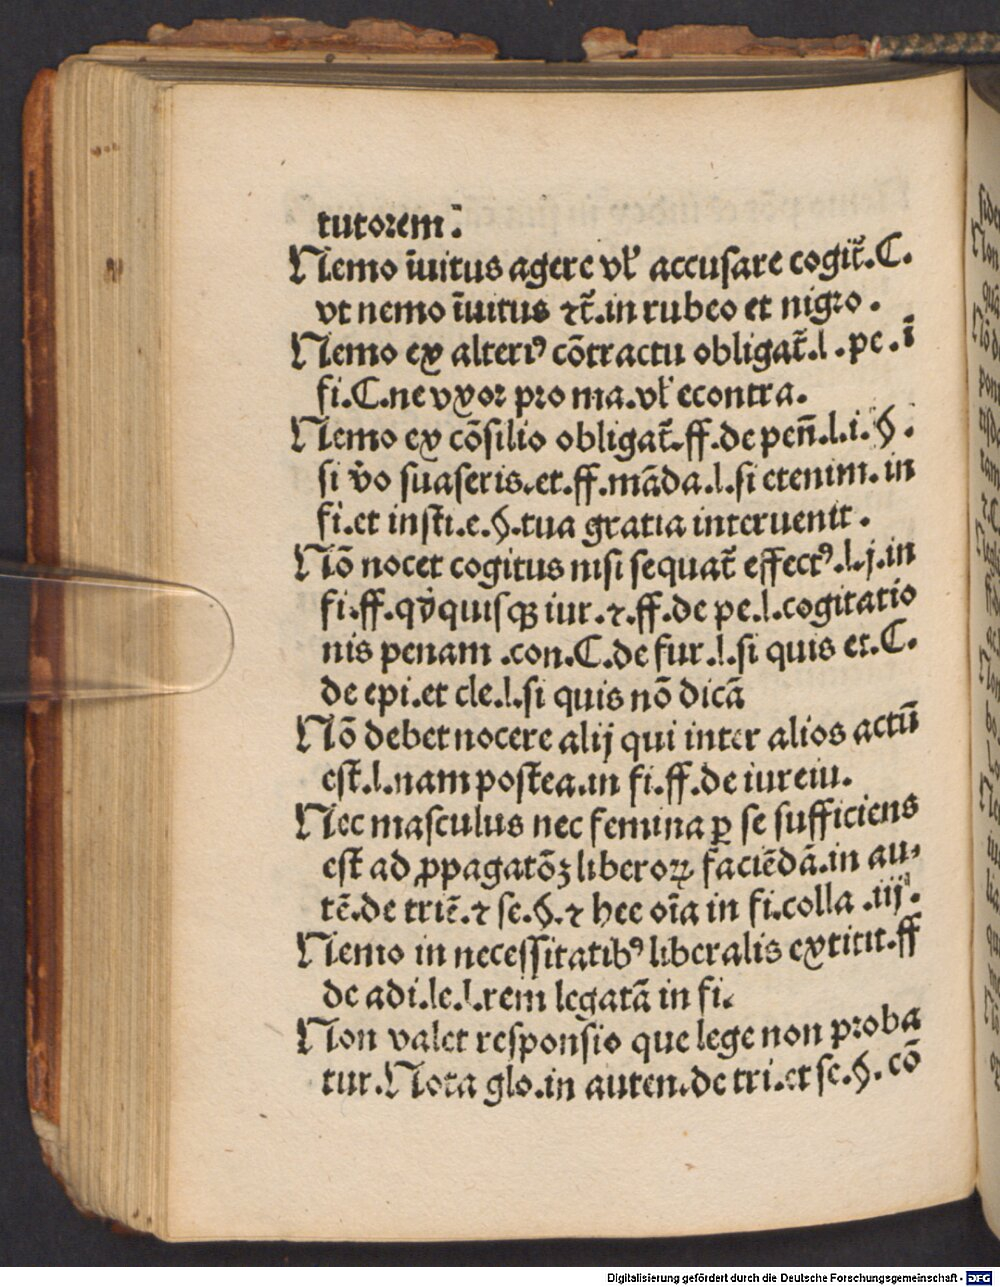 tutorem.
Nemo īuitus agere vl' accusare cogit̄.C.
vt nemo īuitus ⁊c̄.in rubeo et nigro.
Nemo ex alteriꝰ cōtractu obligat̄.l.pe.ī
fi.C.ne vxor pro ma.vl' econtra.
Nemo ex cōsilio obligat̄.ff.de pen̄.l.i.§.
si v̄o suaseris.et.ff.māda.l.si etenim.in
fi.et insti.e.§.tua gratia interuenit.
Nō nocet cogitus nisi sequat̄ effectꝰ.l.j.in
fi.ff.qv̄quisqꝫ iur.⁊.ff.de pe.l.cogitatio
nis penam.con.C.de fur.l.si quis et.C.
de epi.et cle.l.si quis nō dicā
Nō debet nocere alij qui inter alios actū
est.l.nam postea.in fi.ff.de iureiu.
Nec masculus nec femina ꝑ se sufficiens
est ad ꝓpagatōꝫ liberoꝝ faciēdā.in au-
tē.de triē.⁊ se.§.⁊ hec oīa in fi.colla.iij.
Nemo in necessitatibꝰ liberalis extitit.ff
de adi.le.l.rem legatā in fi.
Non valet responsio que lege non proba
tur.Nota glo.in auten.de tri.et se.§.cō
Digitalisierung gefördert durch die Deutsche Forschungsgemeinschaft - DFG